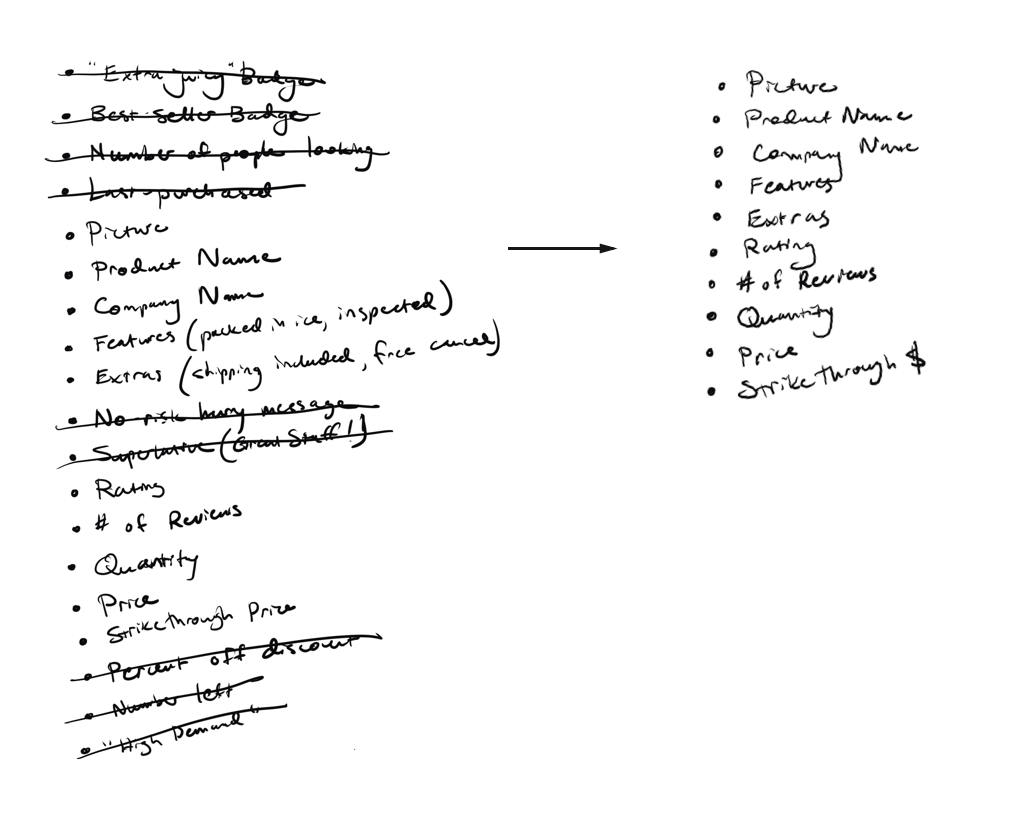 • "Extra juicy" Badge
• Best seller Badge
• Number of people looking
• Last purchased
• Picture
• Product Name
• Company Name
• Features (packed in ice, inspected)
• Extras (shipping included, free cancel)
• No risk hurry message
• Superlative (Great Stuff!)
• Rating
• # of Reviews
• Quantity
• Price
• Strikethrough Price
• Percent off discount
• Number left
• "High Demand"
• Picture
• Product Name
• Company Name
• Features
• Extras
• Rating
• # of Reviews
• Quantity
• Price
• Strikethrough $